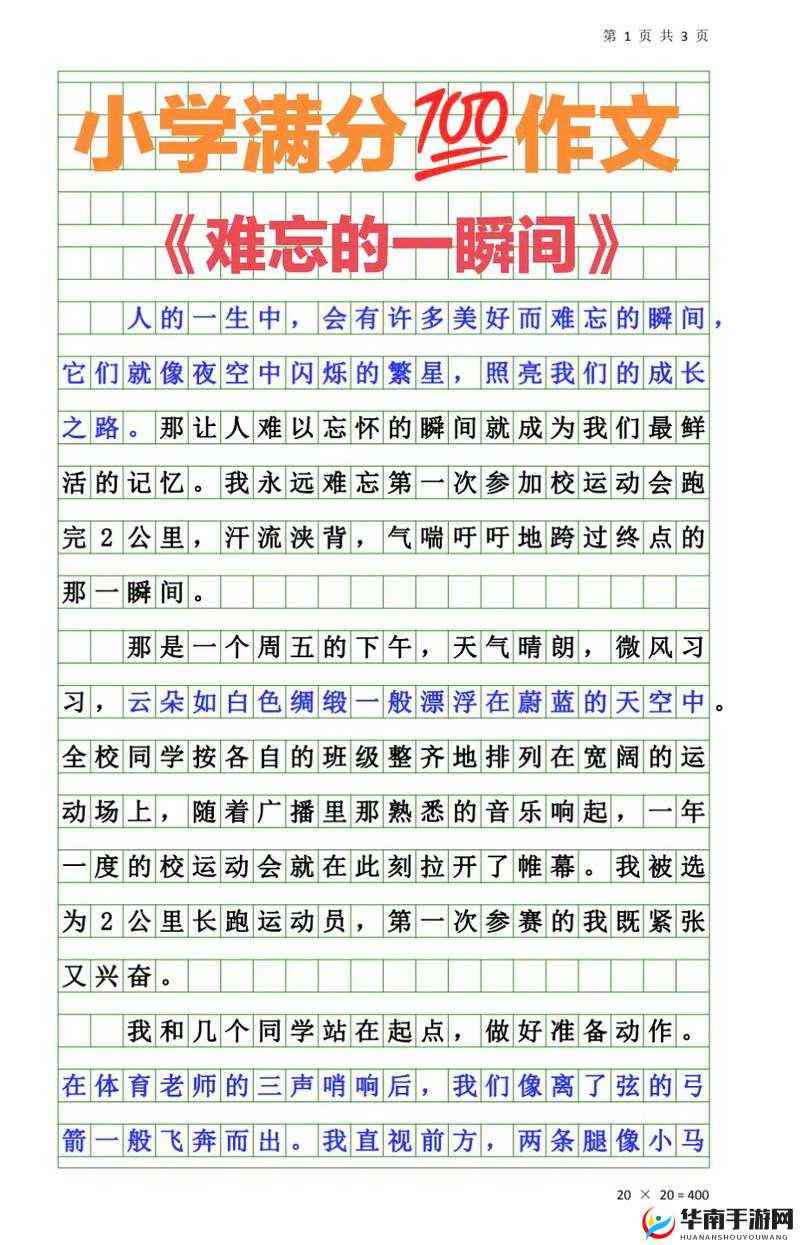 第 1 页 共 3 页
小学满分100作文
《难忘的一瞬间》
人的一生中，会有许多美好而难忘的瞬间，
它们就像夜空中闪烁的繁星，照亮我们的成长
之路。那让人难以忘怀的瞬间就成为我们最鲜
活的记忆。我永远难忘第一次参加校运动会跑
完2公里，汗流浃背，气喘吁吁地跨过终点的
那一瞬间。
那是一个周五的下午，天气晴朗，微风习
习，云朵如白色绸缎一般漂浮在蔚蓝的天空中。
全校同学按各自的班级整齐地排列在宽阔的运
动场上，随着广播里那熟悉的音乐响起，一年
一度的校运动会就在此刻拉开了帷幕。我被选
为2公里长跑运动员，第一次参赛的我既紧张
又兴奋。
我和几个同学站在起点，做好准备动作。
在体育老师的三声哨响后，我们像离了弦的弓
箭一般飞奔而出。我直视前方，两条腿像小马
20 × 20 = 400
华南手游网
HUANANSHOUYOUWANG